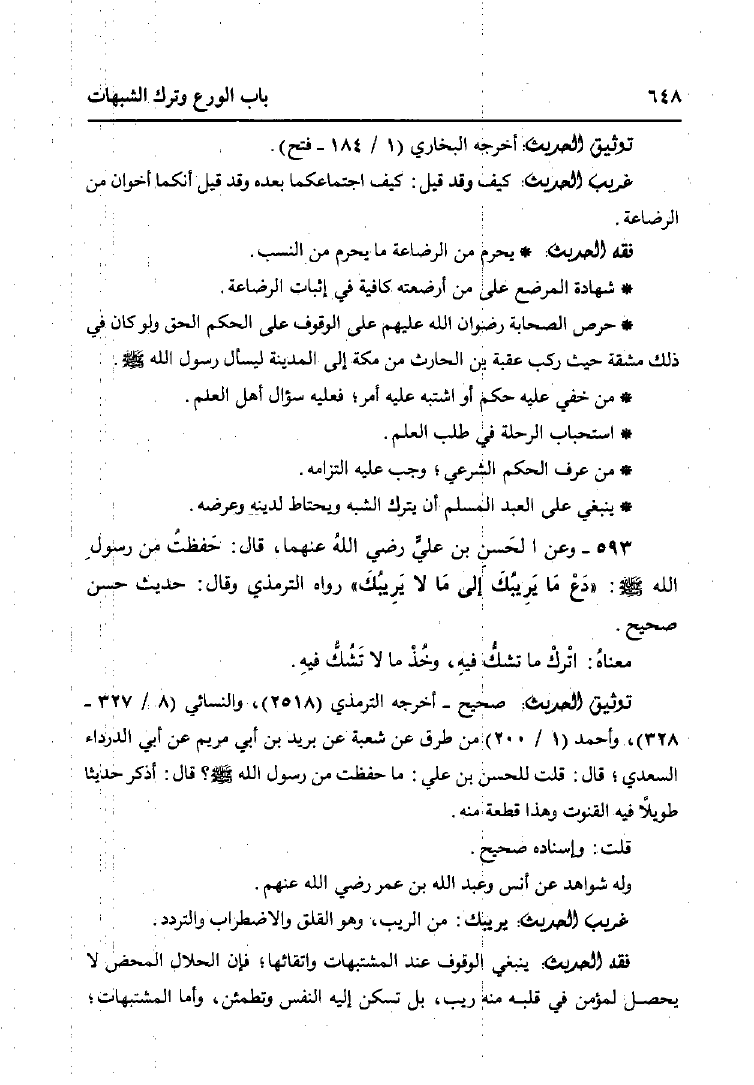 ٦٤٨ باب الورع وترك الشبهات
توثيق الحديث: أخرجه البخاري (١ / ١٨٤ ـ فتح).
غريب الحديث: كيف وقد قيل: كيف اجتماعكما بعده وقد قيل أنكما أخوان من
الرضاعة.
فقه الحديث: * يحرم من الرضاعة ما يحرم من النسب.
* شهادة المرضع على من أرضعته كافية في إثبات الرضاعة.
* حرص الصحابة رضوان الله عليهم على الوقوف على الحكم الحق ولو كان في
ذلك مشقة حيث ركب عقبة بن الحارث من مكة إلى المدينة ليسأل رسول الله ﷺ.
* من خفي عليه حكم أو اشتبه عليه أمر؛ فعليه سؤال أهل العلم.
* استحباب الرحلة في طلب العلم.
* من عرف الحكم الشرعي؛ وجب عليه التزامه.
* ينبغي على العبد المسلم أن يترك الشبه ويحتاط لدينه وعرضه.
٥٩٣ ـ وعن ا لحَسن بن عليٍّ رضي اللهُ عنهما، قال: حَفظتُ من رسولِ
الله ﷺ: «دَعْ مَا يَرِيبُكَ إلى مَا لا يَرِيبُكَ» رواه الترمذي وقال: حديث حسن
صحيح.
معناهُ: اتْركْ ما تشكُّ فيهِ، وخُذْ ما لا تَشُكُّ فيهِ.
توثيق الحديث: صحيح ـ أخرجه الترمذي (٢٥١٨)، والنسائي (٨ / ٣٢٧ ـ
٣٢٨)، وأحمد (١ / ٢٠٠) من طرق عن شعبة عن بريد بن أبي مريم عن أبي الدرداء
السعدي؛ قال: قلت للحسن بن علي: ما حفظت من رسول الله ﷺ؟ قال: أذكر حديثا
طويلًا فيه القنوت وهذا قطعة منه.
قلت: وإسناده صحيح.
وله شواهد عن أنس وعبد الله بن عمر رضي الله عنهم.
غريب الحديث: يريبك: من الريب، وهو القلق والاضطراب والتردد.
فقه الحديث: ينبغي الوقوف عند المشتبهات واتقائها؛ فإن الحلال المحض لا
يحصل لمؤمن في قلبه منه ريب، بل تسكن إليه النفس وتطمئن، وأما المشتبهات؛